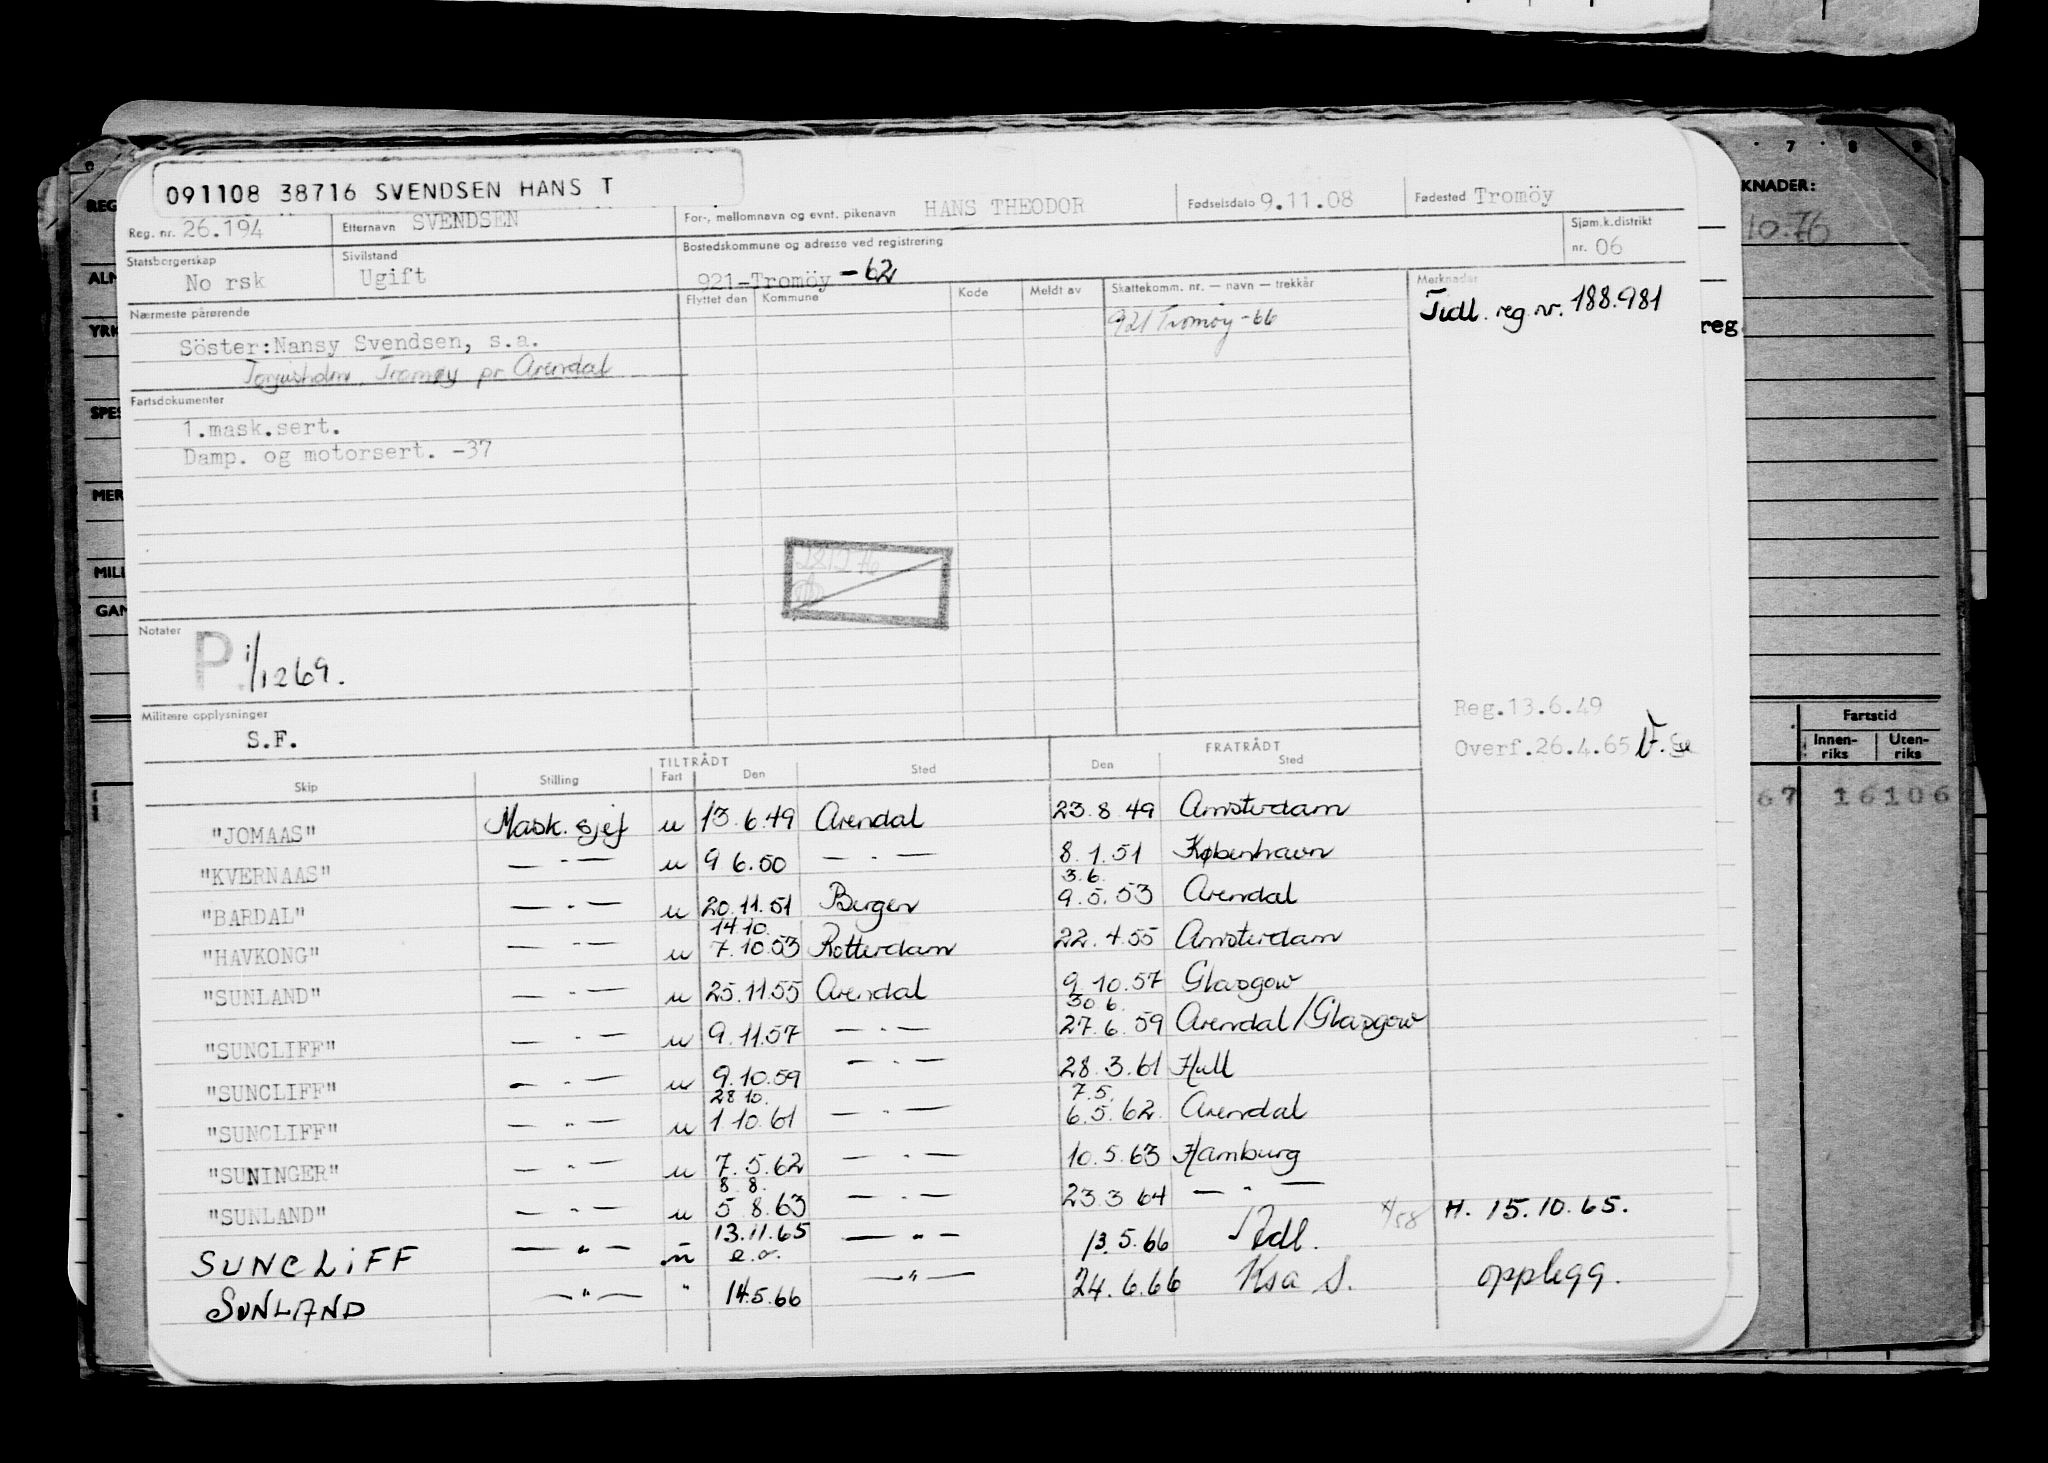 7 8 9
KNADER:
REG
10.76
091108 38716 SVENDSEN HANS T
Reg. nr. 26.194 Etternavn SVENDSEN For-, mellomnavn og evnt. pikenavn HANS THEODOR Fødselsdato 9.11.08 Fødested Tromöy
Statsborgerskap No rsk Sivilstand Ugift Bostedskommune og adresse ved registrering 921-Tromöy -62 Sjøm.k.distrikt nr. 06
ALM
YRK
reg.
Nærmeste pårørende Flyttet den Kommune Kode Meldt av Skattekomm. nr. — navn — trekkår Merknader
921 Tromøy -66 Tidl. reg. nr. 188.981
Söster:Nansy Svendsen, s.a.
Torjusholm, Tromøy pr Arendal
Fartsdokumenter
SPES
1.mask.sert.
Damp. og motorsert. -37
MER
MILI
GAN
Notater P. 1/12 69.
Militære opplysninger
S.F.
Reg.13.6.49
Overf.26.4.65
Fartstid
Innen-riks Uten-riks
67 16106
TILTRÅDT FRATRÅDT
Skip Stilling Fart Den Sted Den Sted
"JOMAAS" Mask. sjef u 13.6.49 Arendal 23.8.49 Amsterdam
"KVERNAAS" — " — u 9 6.50 — " — 8.1.51 København
3.6.
"BARDAL" — " — u 20.11.51 Bergen 9.5.53 Arendal
14.10.
"HAVKONG" — " — u 7.10.53 Rotterdam 22.4.55 Amsterdam
"SUNLAND" — " — u 25.11.55 Arendal 9.10.57 Glasgow
30 6.
"SUNCLIFF" — " — u 9.11.57 — " — 27.6.59 Arendal/Glasgow
"SUNCLIFF" — " — u 9.10.59 — " — 28.3.61 Hull
28 10. 7.5.
"SUNCLIFF" — " — u 1 10.61 — " — 6.5.62 Arendal
"SUNINGER" — " — u 7.5.62 — " — 10.5.63 Hamburg
8 8.
"SUNLAND" — " — u 5 8.63 — " — 23.3 64 — " —
SUNCLIFF — " — u 13.11.65 e.o. — " — 13.5.66 Tidl. H. 15.10.65.
SUNLAND — " — " 14.5.66 — " — 24.6.66 Ksa S. opplegg.